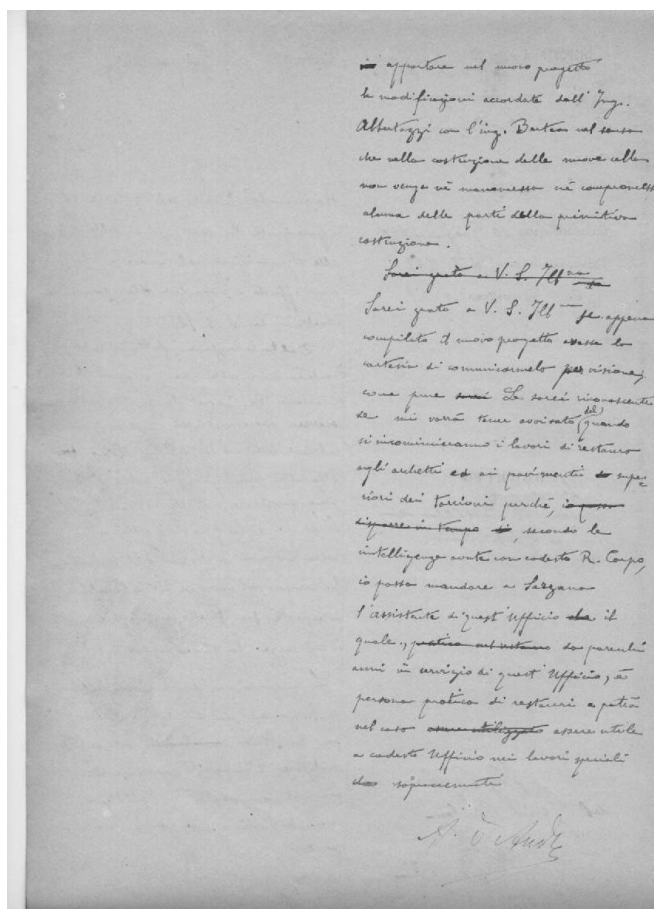 apportare nel nuovo progetto
le modificazioni accordate dall'Ing.
Albertazzi con l'ing. Bertea nel senso
che nella costruzione delle nuove celle
non venga nè manomessa nè compromessa
alcuna delle parti della primitiva
costruzione.
Sarei grato a V. S. Ill
Sarei grato a V. S. Ill se appena
compilato il nuovo progetto avesse la
cortesia di comunicarmelo per visione,
come pure sarei Le sarei riconoscente
se mi vorrà tener avvisato del quando
si incominceranno i lavori di restauro
agli archetti ed ai pavimenti supe-
riori dei torrioni perchè, io possa
disporre in tempo, secondo le
intelligenze avute con codesto R. Corpo,
io possa mandare a Sarzana
l'assistente di quest'Ufficio che il
quale, pratico da parecchi
anni in servizio di quest'Ufficio, è
persona pratica di restauri e potrà
nel caso essere utilizzato essere utile
a codesto Ufficio nei lavori speciali
sopraccennati
A. D'Andr